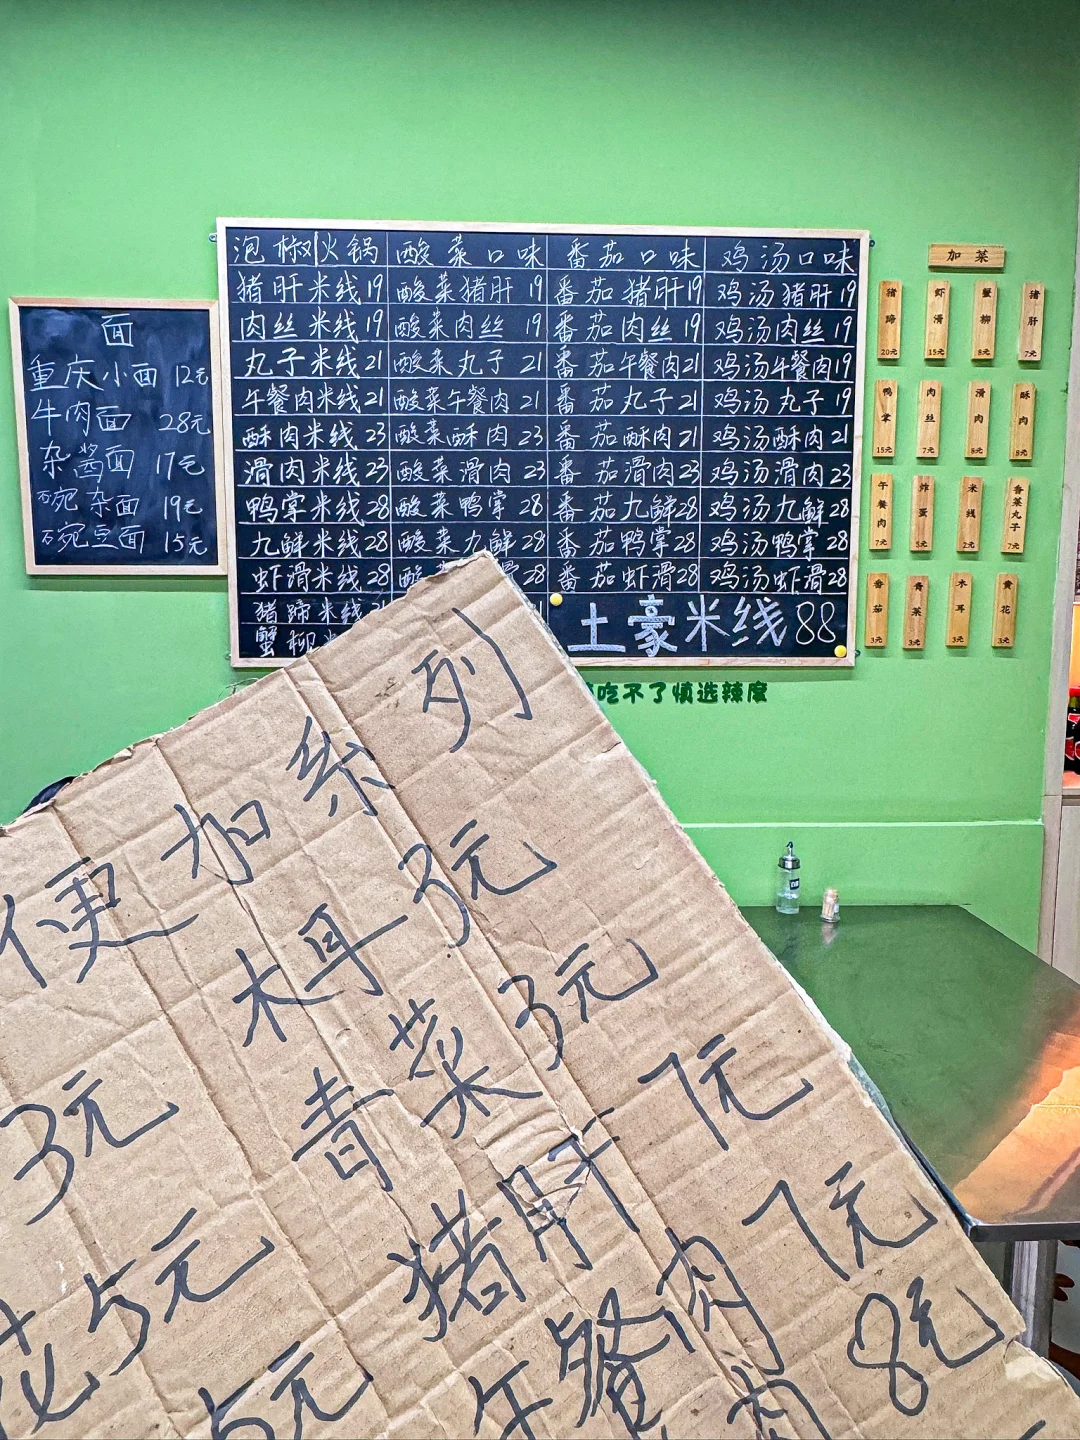 面
重庆小面 12元
牛肉面 28元
杂酱面 17元
碗杂面 19元
碗豆面 15元
泡椒火锅 酸菜口味 番茄口味 鸡汤口味
猪肝米线19 酸菜猪肝 19 番茄猪肝19 鸡汤猪肝19
肉丝米线19 酸菜肉丝 19 番茄肉丝 19 鸡汤肉丝19
丸子米线21 酸菜丸子 21 番茄午餐肉21 鸡汤午餐肉19
午餐肉米线21 酸菜午餐肉 21 番茄丸子21 鸡汤丸子 19
酥肉米线 23 酸菜酥肉 23 番茄酥肉21 鸡汤酥肉 21
滑肉米线23 酸菜滑肉 23 番茄滑肉23 鸡汤滑肉23
鸭掌米线28 酸菜鸭掌 28 番茄九鲜28 鸡汤九鲜28
九鲜米线28 酸菜九鲜28 番茄鸭掌28 鸡汤鸭掌 28
虾滑米线28 28 番茄虾滑28 鸡汤虾滑28
猪蹄米线
蟹柳
土豪米线88
吃不了慎选辣度
加菜
猪蹄 20元
虾滑 15元
蟹柳 8元
猪肝 7元
鸭掌 15元
肉丝 7元
滑肉 8元
酥肉 8元
午餐肉 7元
炸蛋 5元
米线 2元
香菜丸子 7元
番茄 3元
青菜 3元
木耳 3元
黄花 3元
便加系列
木耳3元
3元 青菜3元
花5元 猪肝 7元
5元 午餐肉 7元
肉 8元